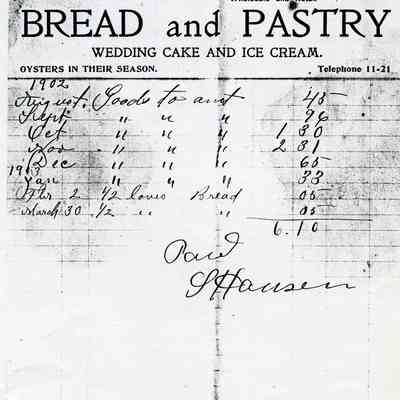 BREAD and PASTRY
WEDDING CAKE AND ICE CREAM.
OYSTERS IN THEIR SEASON. Telephone 11-21
1902
August. Goods to amt 45
Sept " " " 96
Oct " " " 1 30
Nov " " " 2 31
Dec " " " 65
1903
Jan " " " 33
2 1/2 loves Bread 05
March 30 1/2 " " 05
6.10
Paid
S Hansen